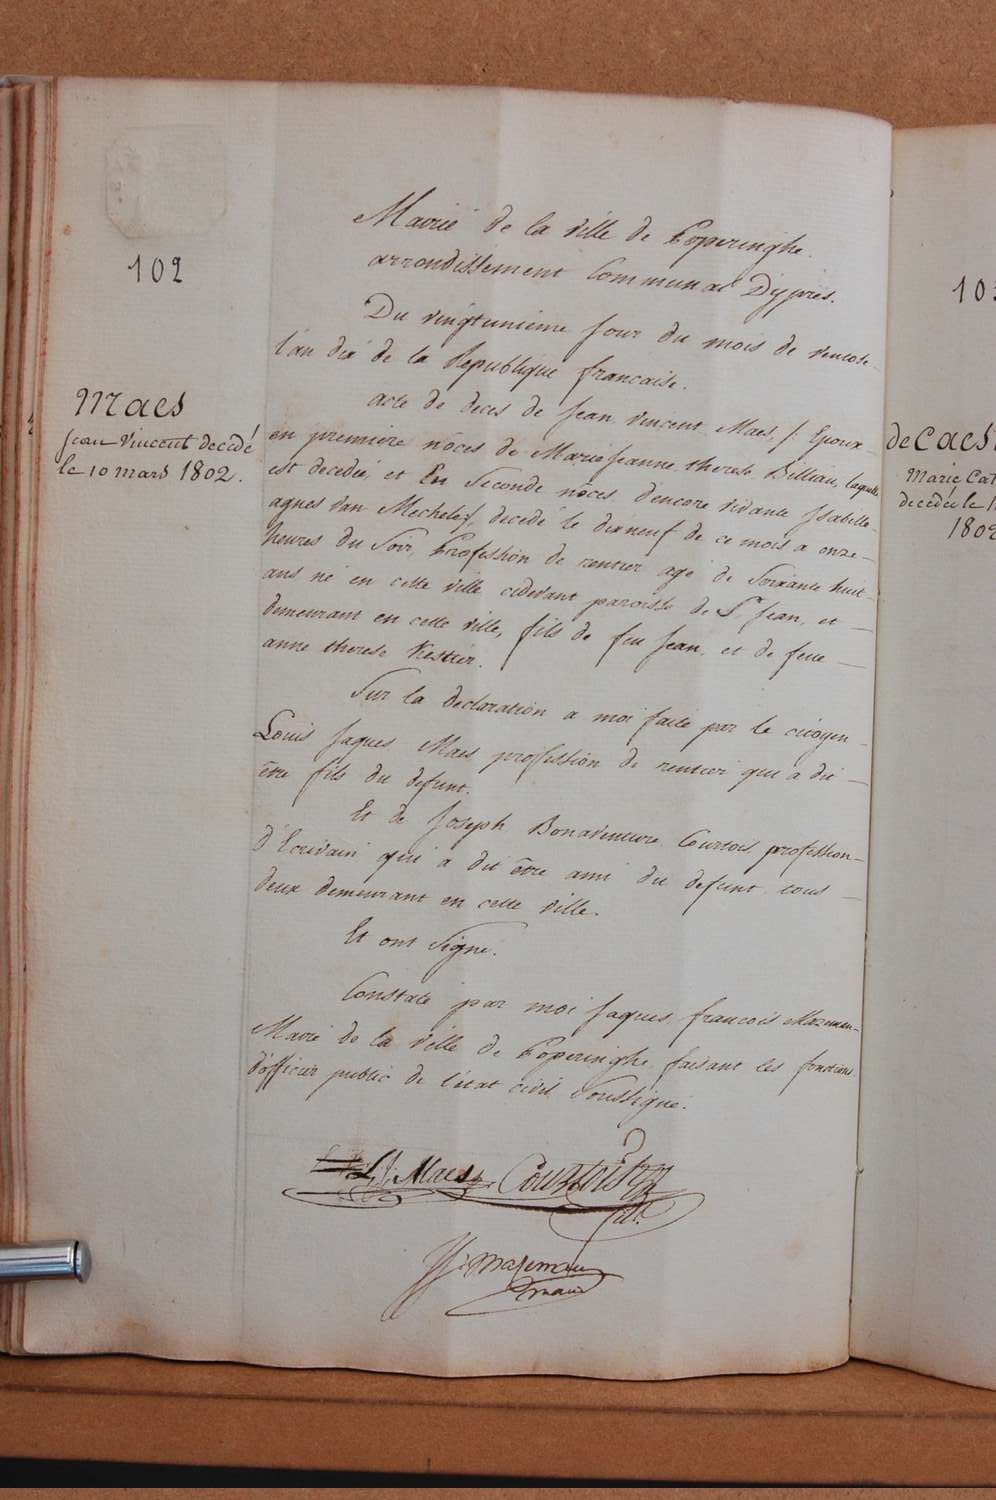 102
Maes
Jean Vincent decédé
le 10 mars 1802.
Mairie de la ville de Poperinghe.
arrondissement Communal Dypres.
Du vingtunieme Jour du mois de ventose
l'an dix de la Republique francaise.
acte de deces de Jean Vincent Maes, /: Epoux
en premiere nôces de Marie Jeanne therese Billiau, laquelle
est decedée, et En Seconde nôces d'encore vivante Isabelle
agnes Van Mechele :/, decedé le dixneuf de ce mois a onze
heures du Soir, Profession de rentier agé de Soixante huit
ans né en cette ville cidevant paroisse de St Jean, et
demeurant en cette ville, fils de feu Jean, et de feue
anne therese Kestier.
Sur la declaration a moi faite par le citoyen
Louis Jaques Maes profession de rentier qui a dit
être fils du defunt.
Et de Joseph Bonaventure Courtois profession
d'Ecrivain qui a dit être ami du defunt tous
deux demeurant en cette ville.
Et ont Signé.
Constaté par moi Jaques francois Mazeman
Maire de la Ville de Poperinghe faisant les fonctions
d'officier public de l'état civil Soussigné.
L. J. Maes Courtois
fils
JJ: Mazeman
maire
103
deCaes
Marie Cat
decedée le 1
1802